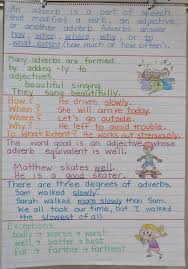 An adverb is a part of speech
that modifies a verb, an adjective,
or another adverb. Adverbs answer
how, when, where, why, or to
what extent (how much or how often).
Many adverbs are formed
by adding -ly to
adjectives.
beautiful singing
They sang beautifully.
How? He drives slowly.
When? She will arrive today.
Where? Let's go outside.
Why? He left to avoid trouble.
To What Extent? He works out strenuously.
The word good is an adjective whose
adverb equivalent is well.
Matthew skates well.
He is a good skater.
There are three degrees of adverbs.
Sam walked slowly.
Sarah walked more slowly than Sam.
We all took our time, but I walked
the slowest of all.
Exceptions
badly → worse → worst
well → better → best
far → farther → farthest